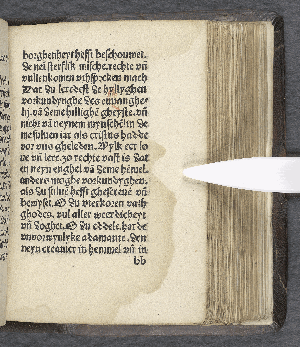 borghenheyt hefft beschouwet.
de nei sterflik mische. rechte vn̄
vullenkomen vthspreken mach
Wat du leredest de hyllyghen
vorkundynghe des ewanghe-
lij. vā deme hillighē gheyste. vn̄
nicht vā neynem mynschē in de
me suluen iar als cristus hadde
vor vns gheleden. Wylk eer lo
ue vn̄ lere. so rechte vast is dat
en neyn enghel vā deme hēmel.
anders moghe vorkundyghen.
als du suluē hefft ghescreuē vn̄
bewyset. O du vterkoren vath
ghodes. vul aller weerdicheyt
vn̄ doghet. O du eddele. harde
vnvorwynlyke adamante. den
neyn creatuer in hemmel vn̄ in
bb